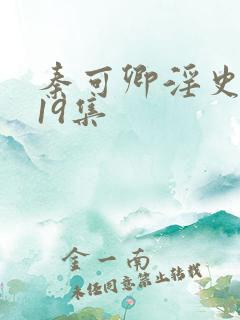 秦可卿淫史
19集
金一南
未经同意禁止转载